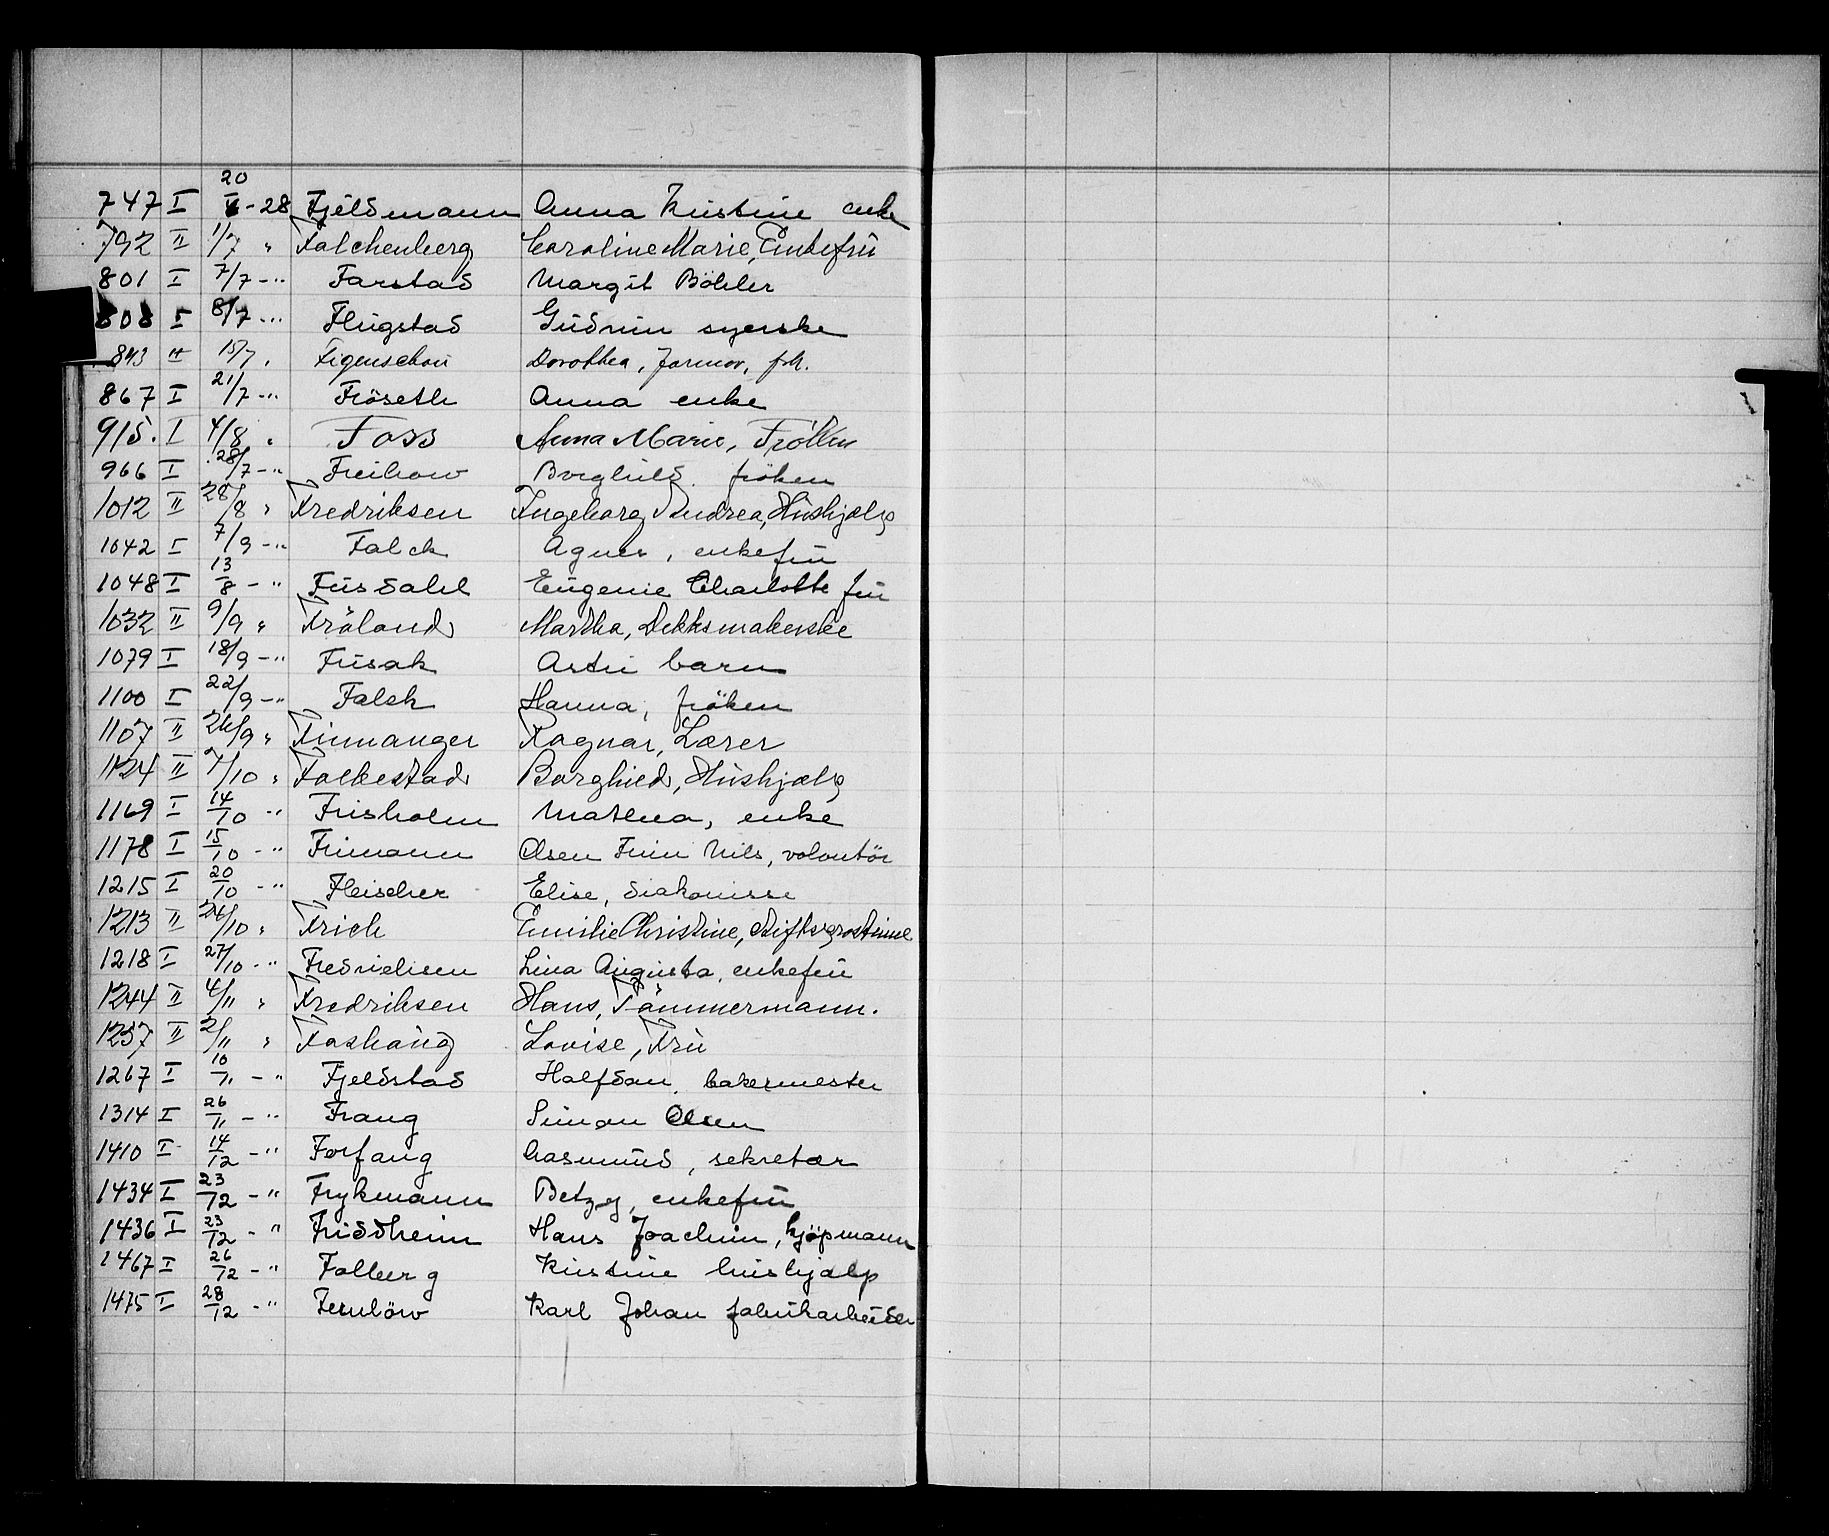 747 I 20/6 - 28 Fjeldmann Anna Kristine enke
792 II 1/7 " Falchenberg Caroline Marie, Enkefrü
801 I 7/7 - " Farstad Margit Böhler
808 I 8/7 - " Flügstad Güdrün syerske
843 II 15/7 " Figenschou Dorothea, Jormor, frk.
867 I 21/7 - " Fröseth Anna enke
915. I 4/8 " Foss Anna Marie, Fröken
966 I 28/7 - " Freihow Borghild. fröken
1012 II 28/8 " Fredriksen Ingeborg Andrea, Hüshjælp
1042 I 7/9 - " Falck Agnes, enkefrü
1048 I 13/8 - " Füsdahl Eügenie Charlotte frü
1032 II 9/9 " Fröland Martha, Dekksmakerske
1079 I 18/9 - " Füsak Astri barn
1100 I 22/9 - " Falch Hanna, fröken
1107 II 26/9 " Finnanger Ragnar, Lærer
1124 II 7/10 " Falkestad Borghild, Hüshjælp
1169 I 14/10 - " Frisholm Mathea, enke
1178 I 15/10 - " Frimann Olsen Finn Nils, volontör
1215 I 20/10 - " Fleischer Elise, diakonisse
1213 II 24/10 " Frich Emilie Christine, Stiftsprostinne
1218 I 27/10 - " Fredrichsen Lina Aügüsta, enkefrü
1244 II 4/11 " Fredriksen Hans, Tömmermann.
1257 II 2/11 " Foshaüg Lovise, Frü
1267 I 10/11 - " Fjeldstad Halfdan, bakermester
1314 I 26/11 - " Frang Simon Olsen
1410 I 14/12 - " Forfang Aasmünd, sekretær
1434 I 23/12 - " Frykmann Betzy, enkefrü
1436 I 23/12 - " Friddheim Hans Joachim, kjöpmann
1467 I 26/12 - " Falberg Kristine hüshjælp
1475 I 28/12 - " Fernlöw Karl Johan fabrikarbeider